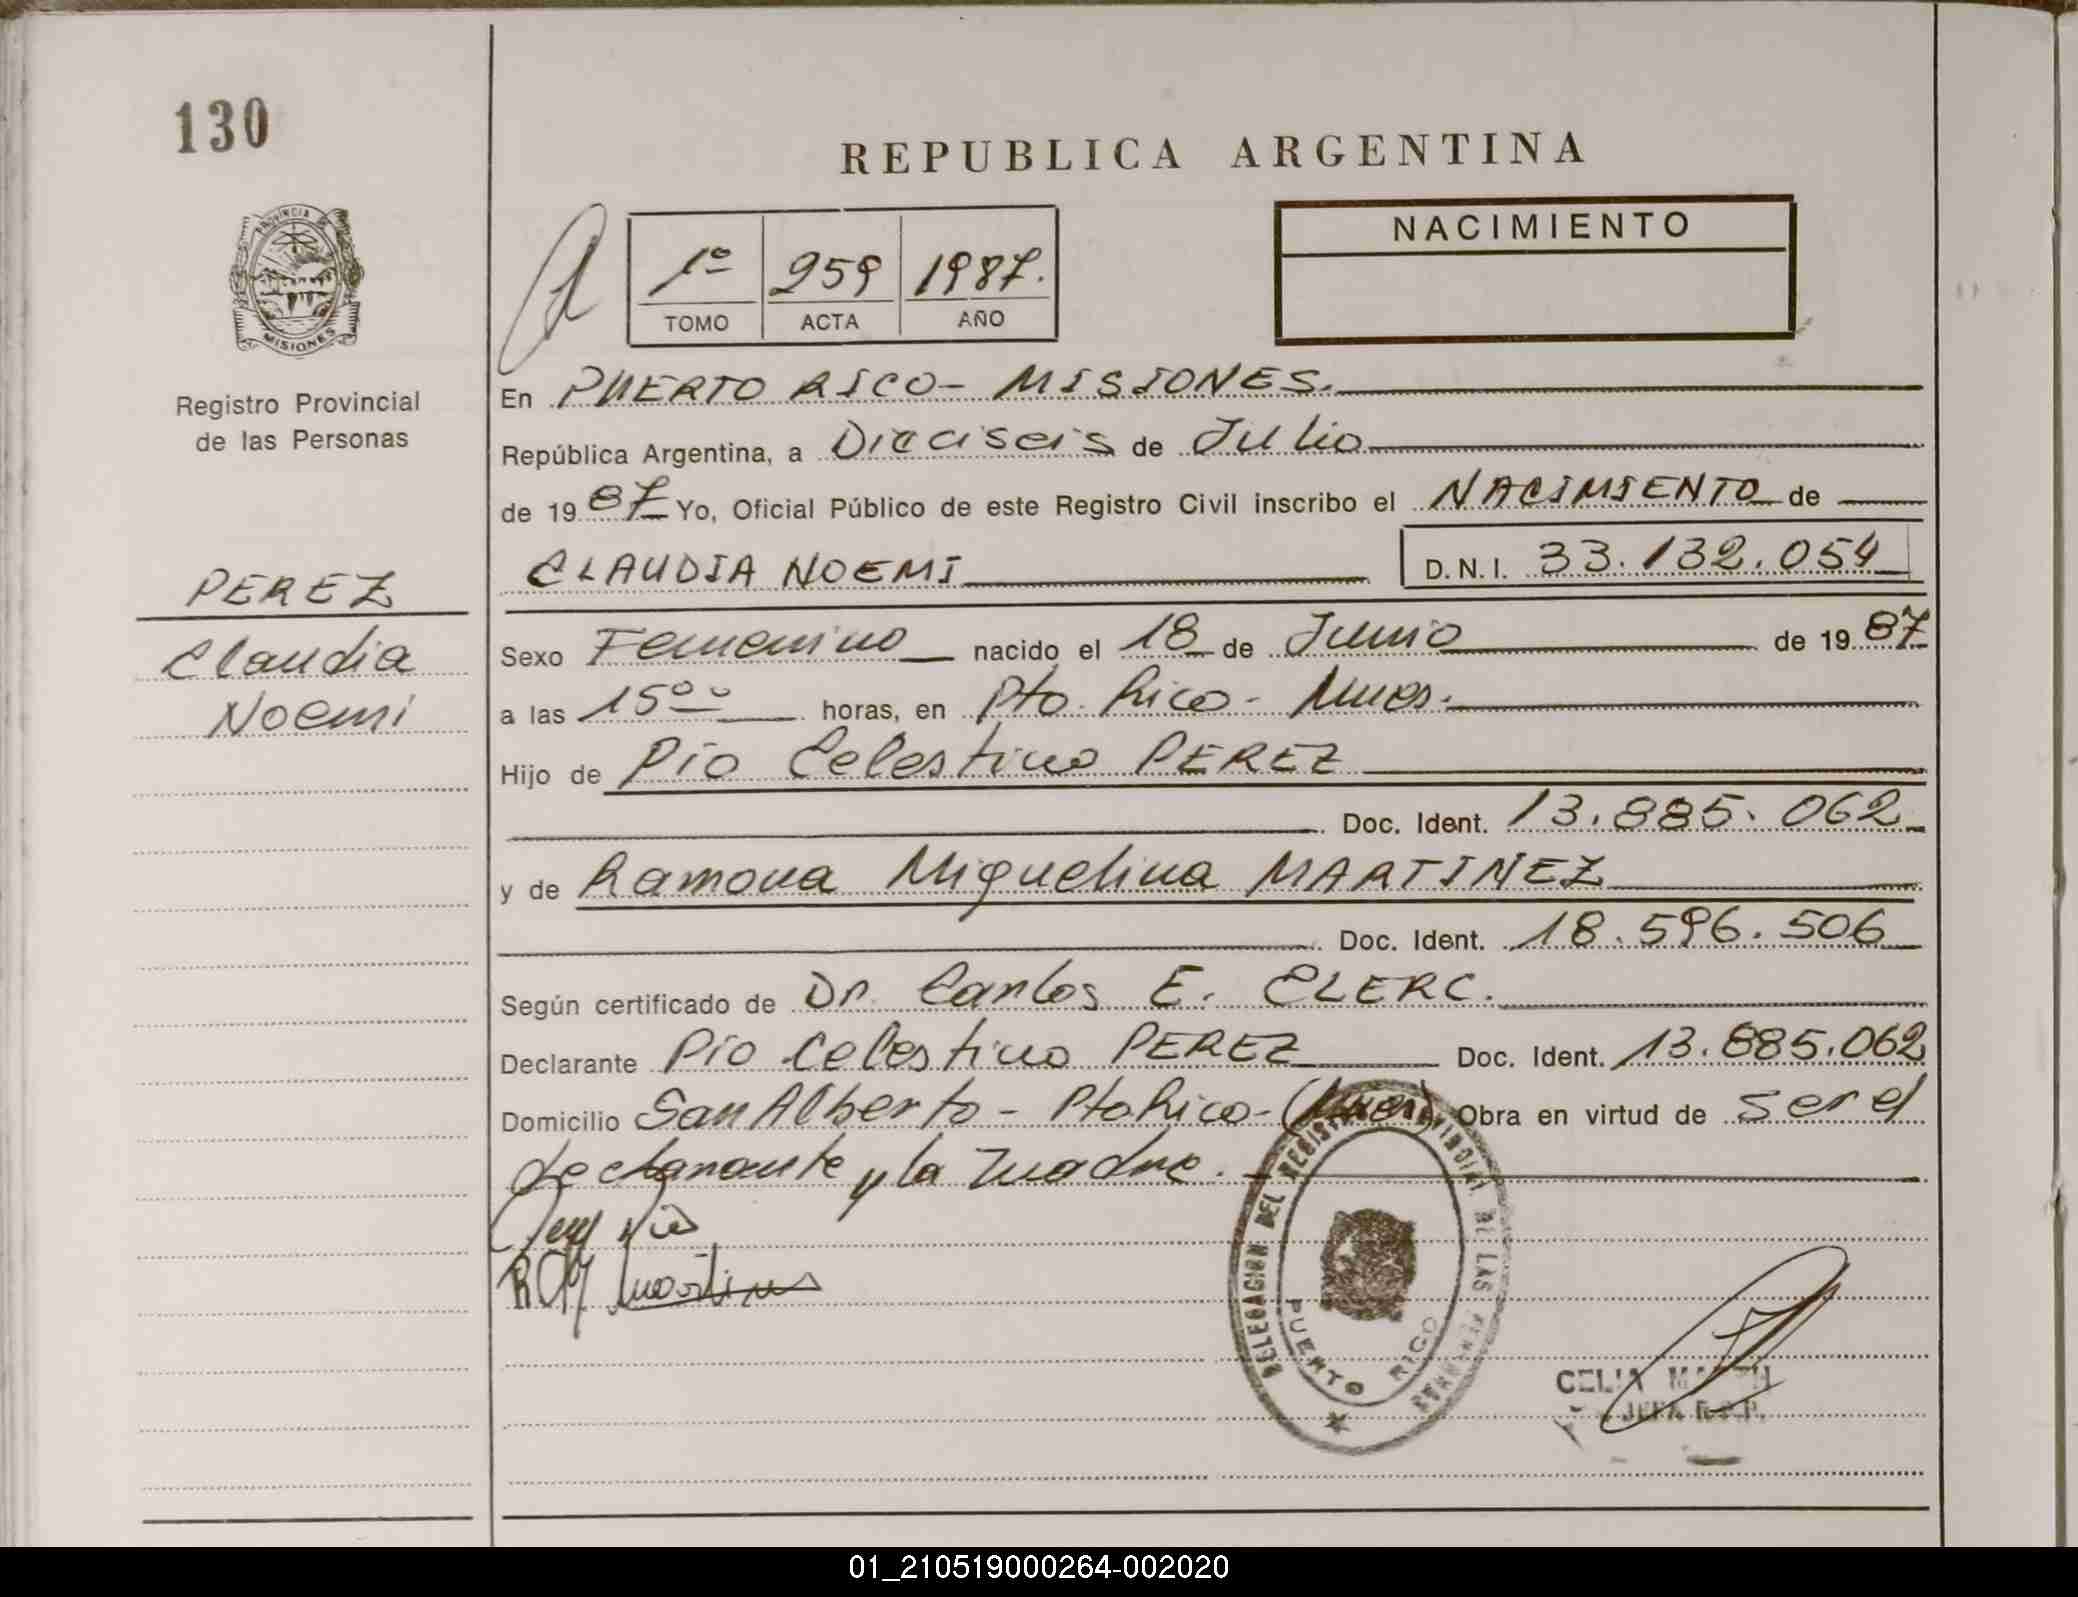 130
REPUBLICA ARGENTINA
NACIMIENTO
1º 259 1987.
TOMO ACTA AÑO
PROVINCIA DE
MISIONES
Registro Provincial
de las Personas
PEREZ
Claudia
Noemi
En PUERTO RICO - MISIONES.
República Argentina, a Dieciseis de Julio
de 1987 Yo, Oficial Público de este Registro Civil inscribo el NACIMIENTO de
CLAUDIA NOEMI D.N.I. 33.132.054
Sexo Femenino nacido el 18 de Junio de 1987
a las 15ºº horas, en Pto. Rico - Mnes.
Hijo de Pío Celestino PEREZ
Doc. Ident. 13.885.062
y de Ramona Miguelina MARTINEZ
Doc. Ident. 18.596.506
Según certificado de Dr. Carlos E. CLERC.
Declarante Pío Celestino PEREZ Doc. Ident. 13.885.062
Domicilio San Alberto - Pto Rico - (Mnes) Obra en virtud de ser el
declarante y la madre.
DELEGACION DEL REGISTRO PROVINCIAL DE LAS PERSONAS
PUERTO RICO
CELIA
JEFA R.P.P.
01_210519000264-002020